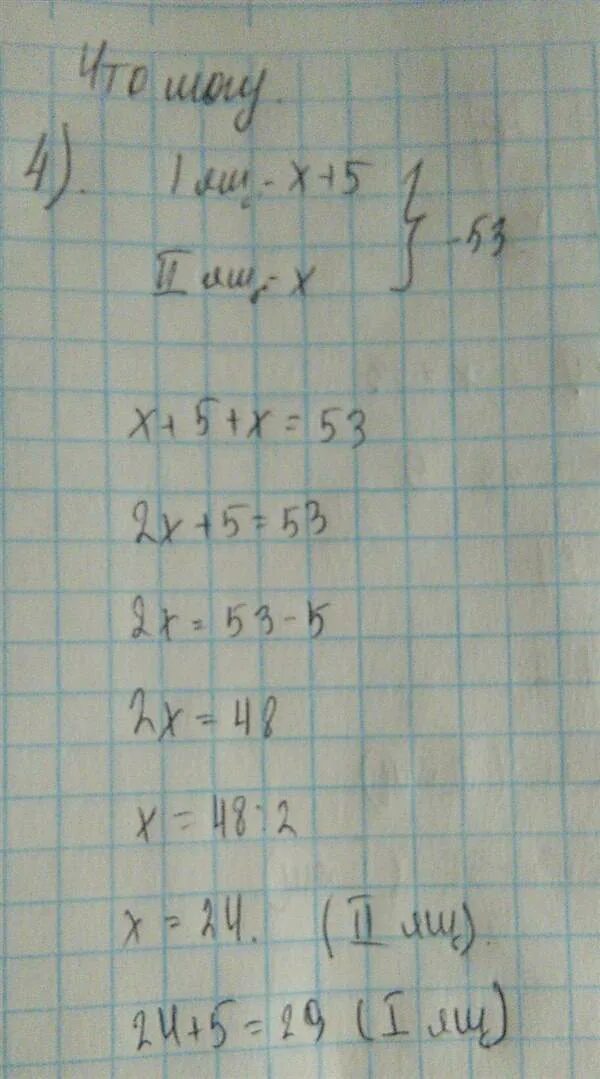 Что могу.
4). I ящ. - x+5 } - 53
II ящ. - x
x + 5 + x = 53
2x + 5 = 53
2x = 53 - 5
2x = 48
x = 48 : 2
x = 24. (II ящ).
24 + 5 = 29 (I ящ)